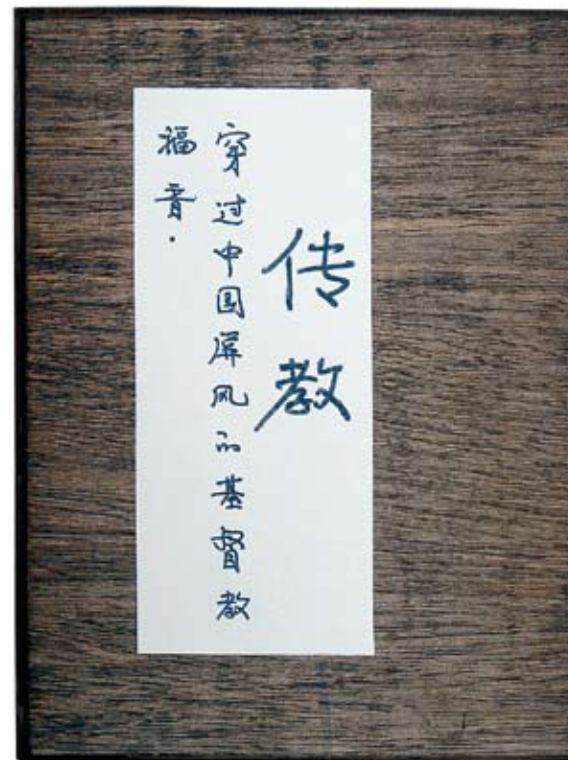 传教
穿过中国屏风的基督教
福音.